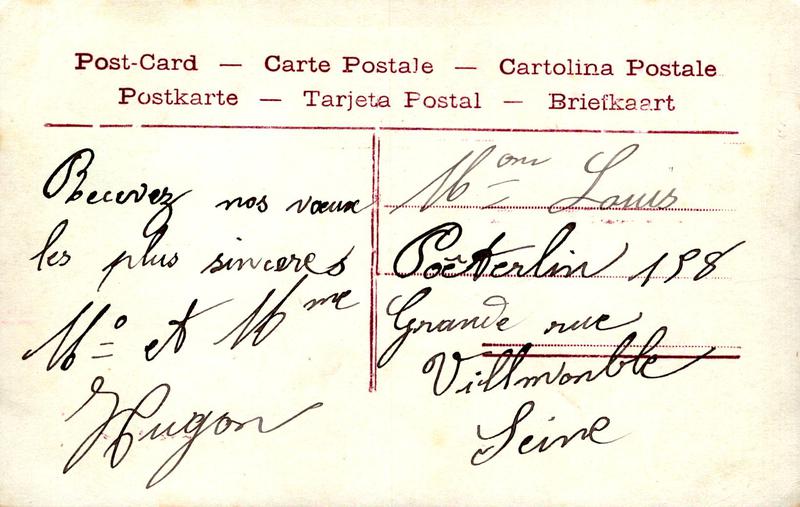 Post-Card — Carte Postale — Cartolina Postale
Postkarte — Tarjeta Postal — Briefkaart
Recevez nos vœux
les plus sincères
Mr et Mme
Hugon
Mme Louis
Poëterlin 198
Grande rue
Villmonble
Seine